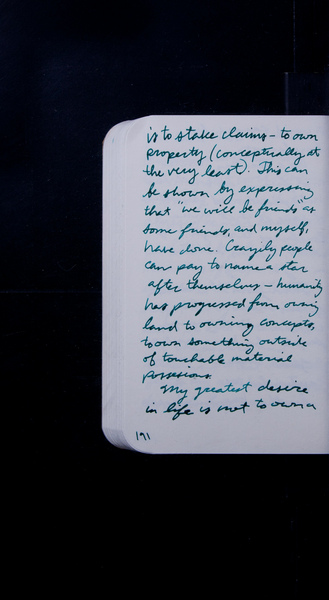 is to stake claims - to own
property (conceptually at
the very least). This can
be shown by expressing
that "we will be friends" as
some friends, and myself,
have done. Crazily people
can pay to name a star
after themselves - humanity
has progressed from owning
land to owning concepts,
to own something outside
of touchable material
possesions.
My greatest desire
in life is not to own a
191